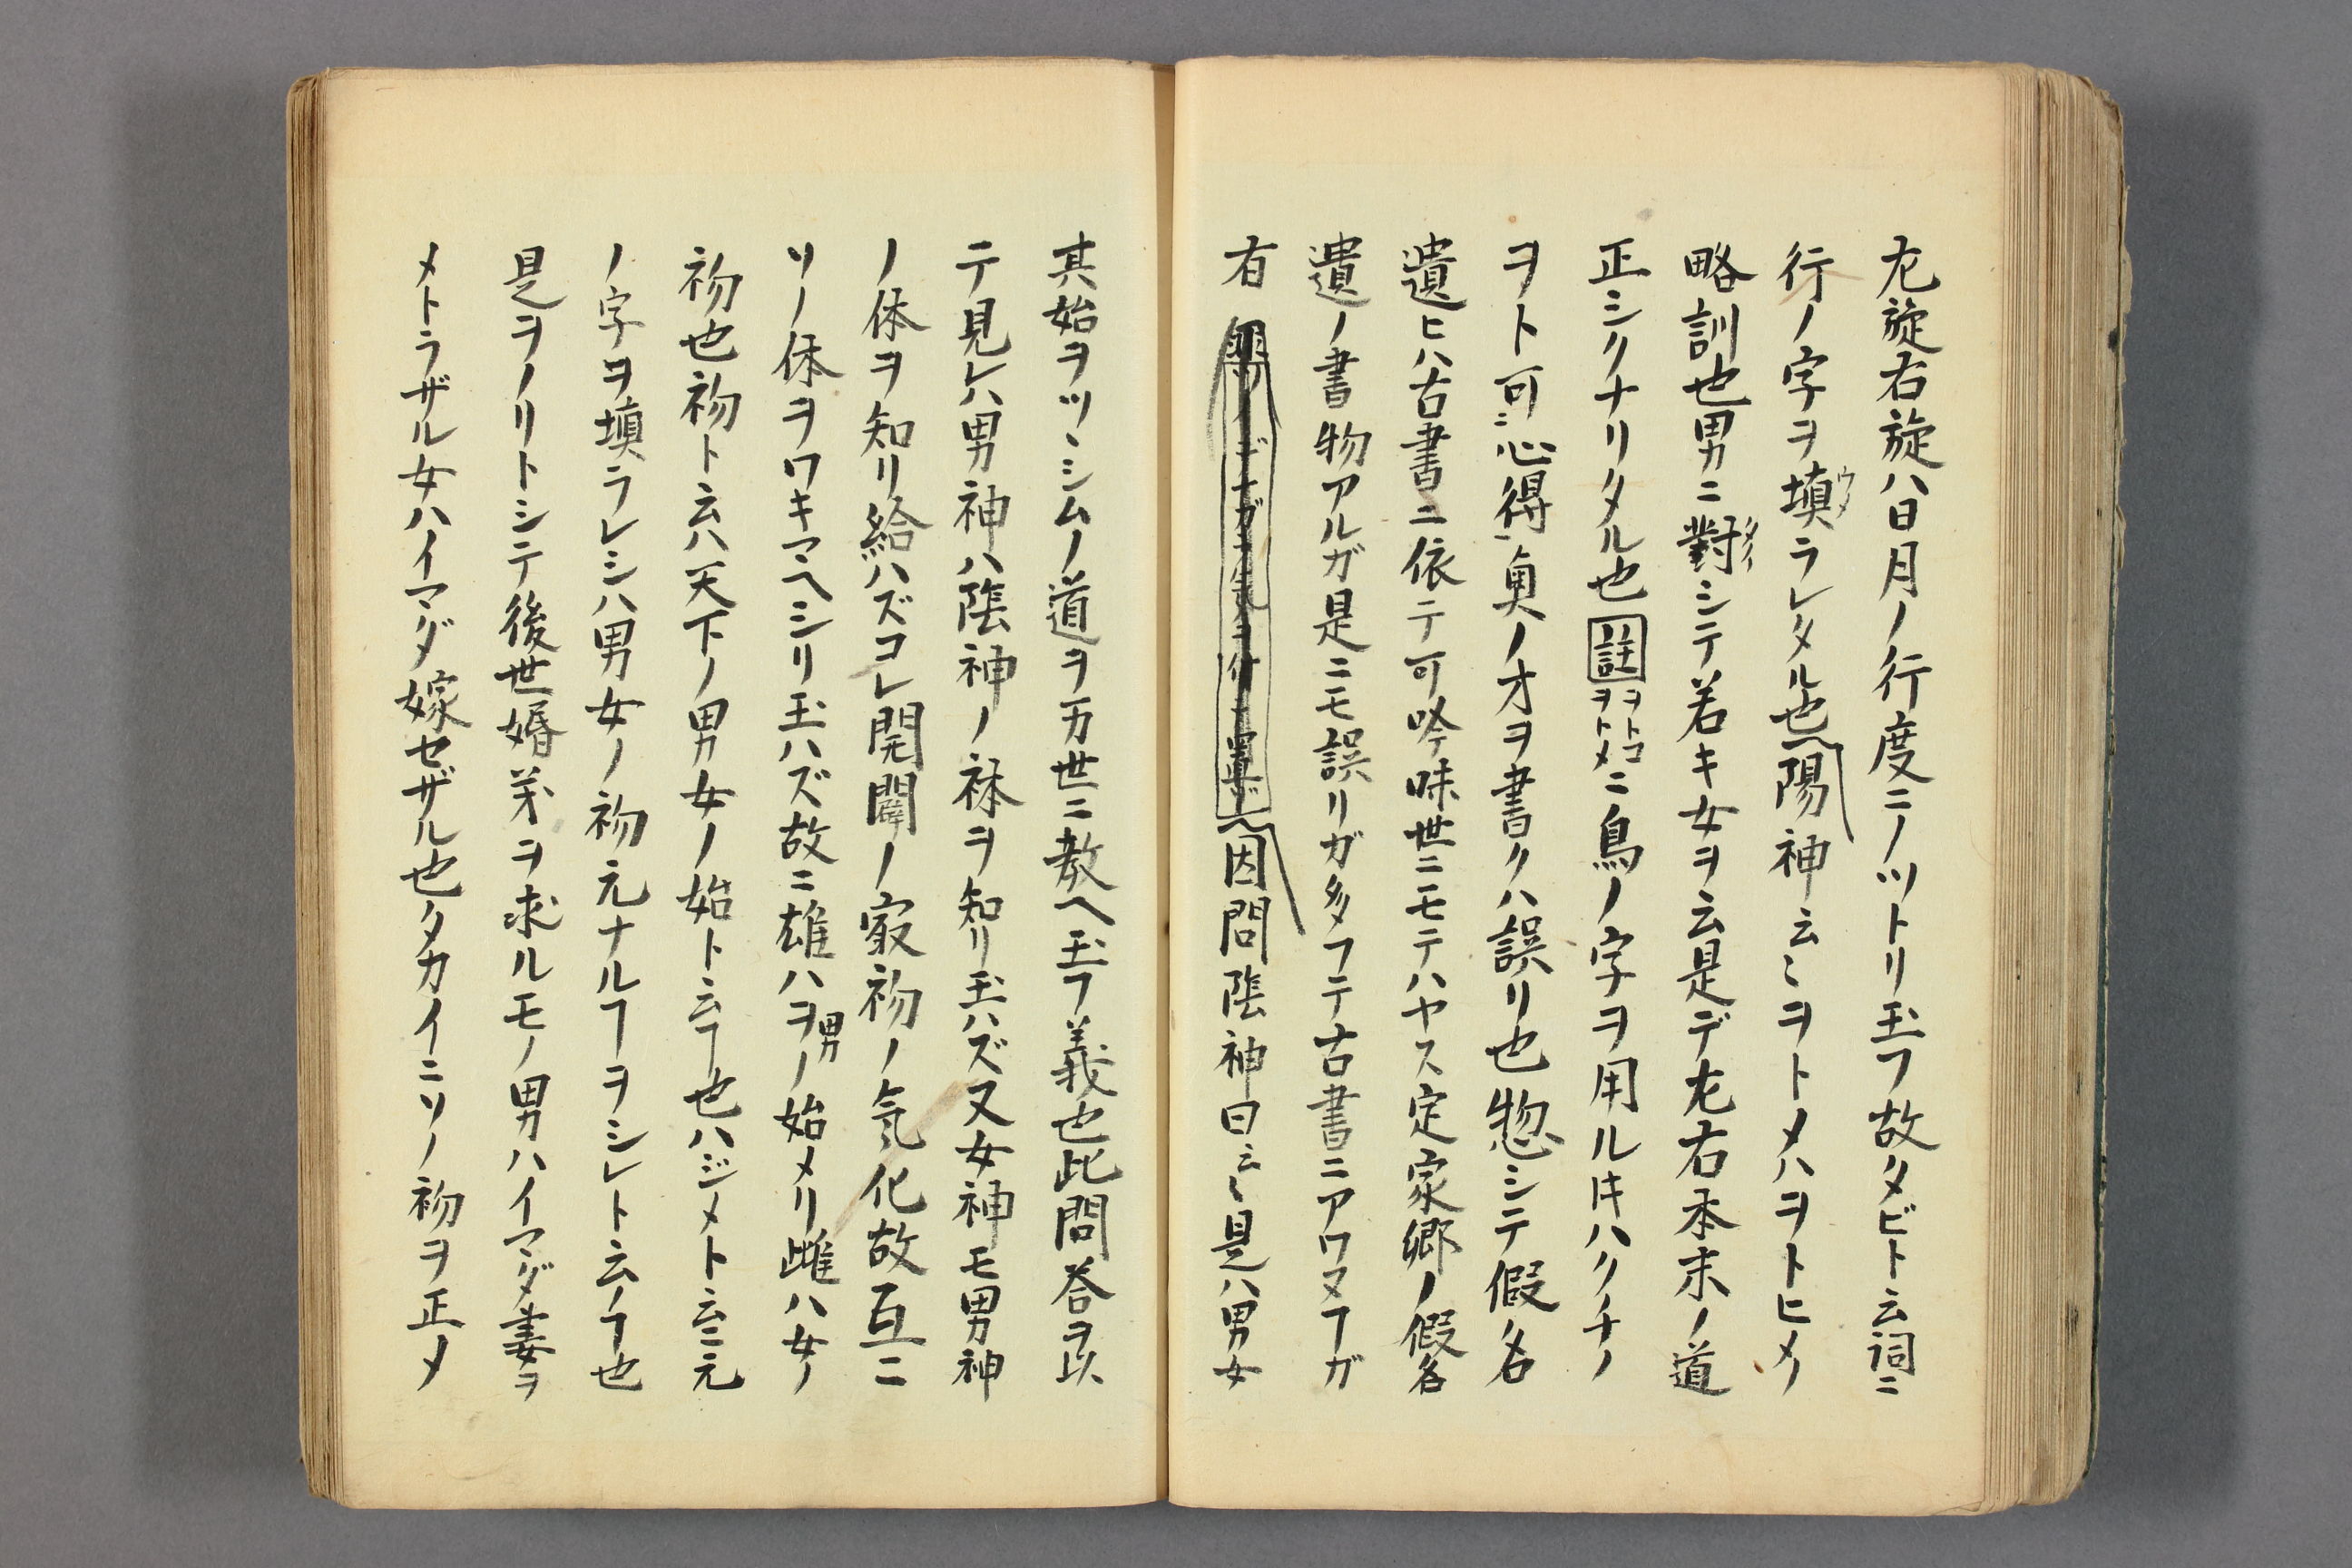 左旋右旋ハ日月ノ行度ニノツトリ玉フ故タビト云詞ニ
行ノ字ヲ填ラレタル也陽神云〻ヲトメハヲトヒメノ
略訓也男ニ對シテ若キ女ヲ云是デ左右本末ノ道
正シクナリタル也註ヲトコヲトメニ鳥ノ字ヲ用ルキハクチノ
ヲト可心得奥ノオヲ書クハ誤リ也惣シテ假名
遺ヒハ古書ニ依テ可吟味世ニモテハヤス定家郷ノ假名
遺ノ書物アルガ是ニモ誤リガ多フテ古書ニアワヌヿガ
有因問陰神曰云〻是ハ男女
其始ヲツヽシムノ道ヲ万世ニ教ヘ玉フ義也此問答ヲ以
テ見レハ男神ハ陰神ノ袜ヲ知リ玉ハズ又女神モ男神
ノ体ヲ知リ給ハズコレ開闢ノ最初ノ気化故互ニ
ソノ体ヲワキマヘシリ玉ハズ故ニ雄ハヲ男ノ始メリ雌ハ女ノ
初也初ト云ハ天下ノ男女ノ始ト云ヿ也ハジメト云ニ元
ノ字ヲ填ラレシハ男女ノ初元ナルヿヲシレト云ノヿ也
是ヲノリトシテ後世婚羕ヲ求ルモノ男ハイマダ妻ヲ
メトラザル女ハイマダ嫁セザル也タカイニソノ初ヲ正メ